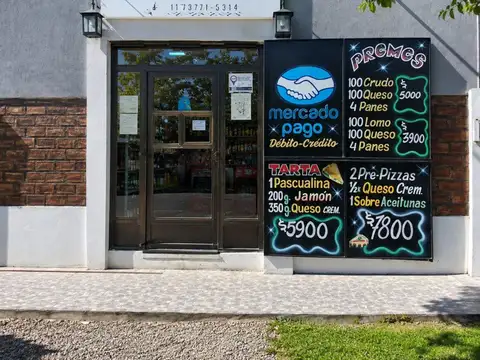 11 73771-5314
mercado
pago
Débito-Crédito
PROMOS
100 Crudo
100 Queso
4 Panes
$5000
100 Lomo
100 Queso
4 Panes
$3900
TARTA
1 Pascualina
200g. Jamón
350g Queso CREM.
$5900
2 Pre-Pizzas
½K Queso Crem.
1 Sobre Aceitunas
$7800